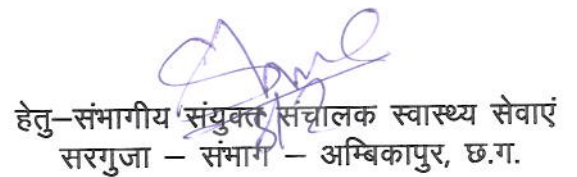 हेतु–संभागीय संयुक्त संचालक स्वास्थ्य सेवाएं
सरगुजा – संभाग – अम्बिकापुर, छ.ग.